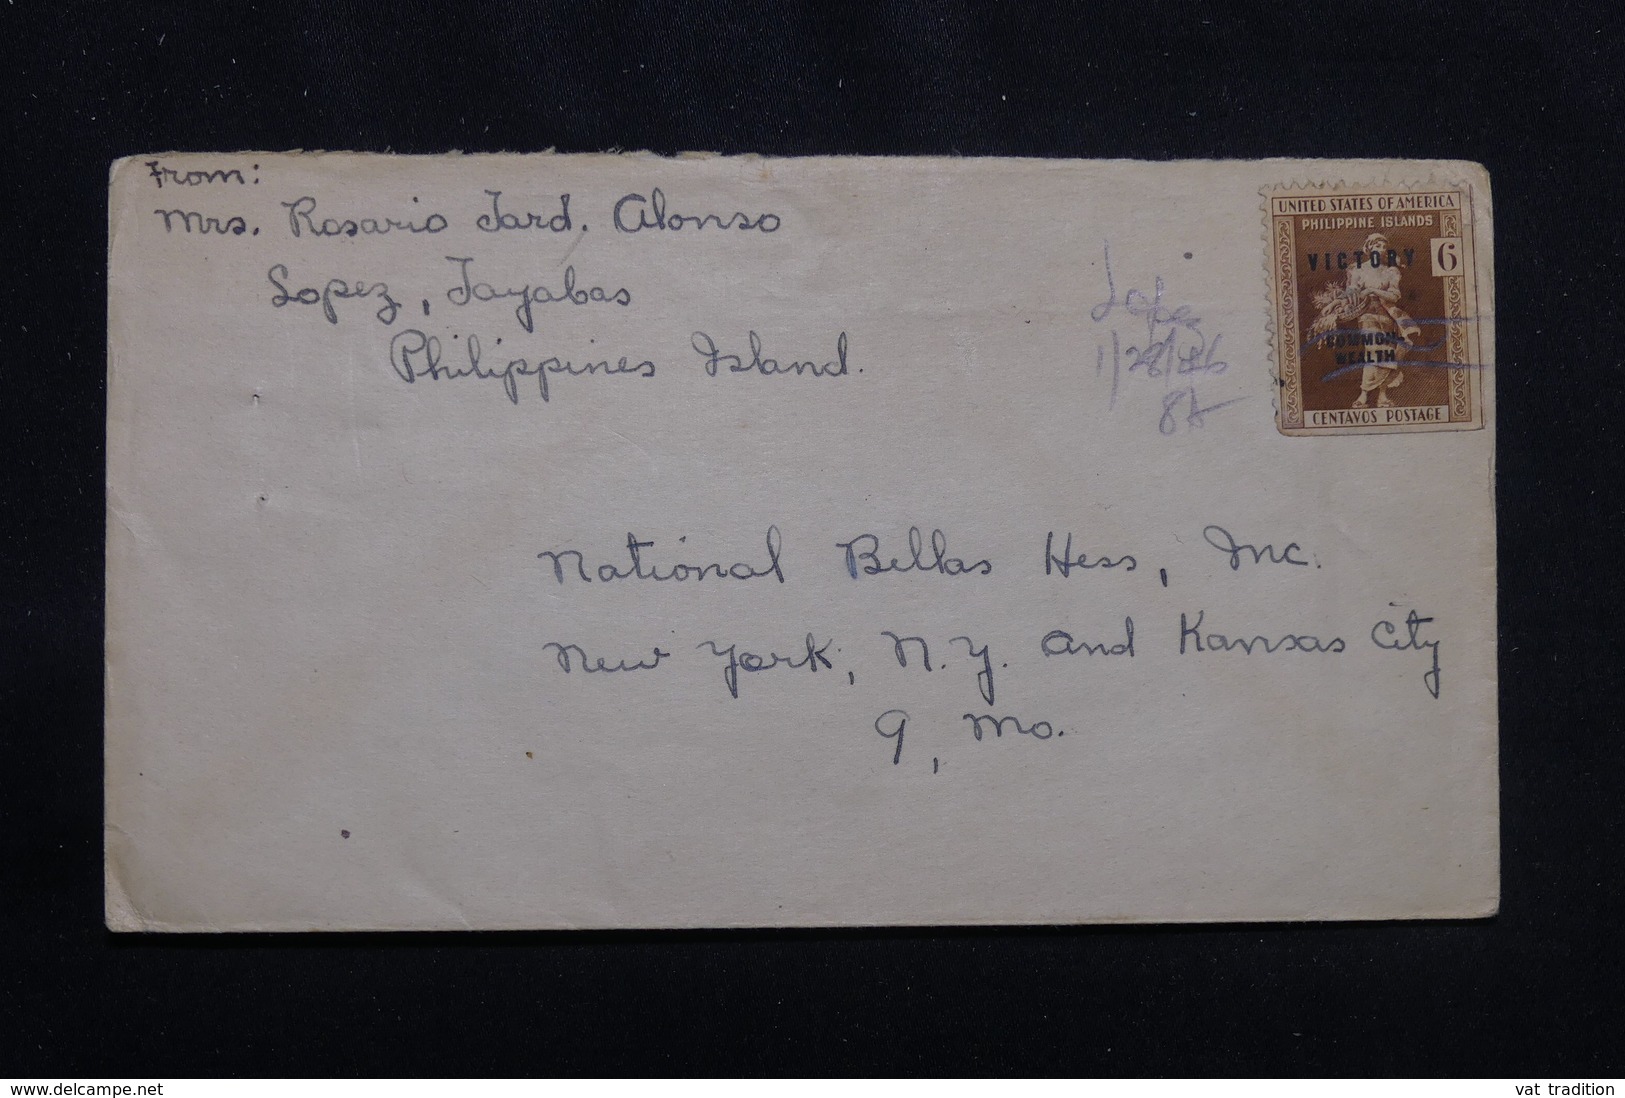 From:
Mrs. Rosario Jard. Alonso
Lopez, Tayabas
Philippines Island.
UNITED STATES OF AMERICA
PHILIPPINE ISLANDS
VICTORY 6
COMMON-
WEALTH
CENTAVOS POSTAGE
Lopez
1/28/46
8A
National Bellas Hess, Inc.
New York, N.Y. and Kansas City
9, Mo.
www.delcampe.net
vat tradition